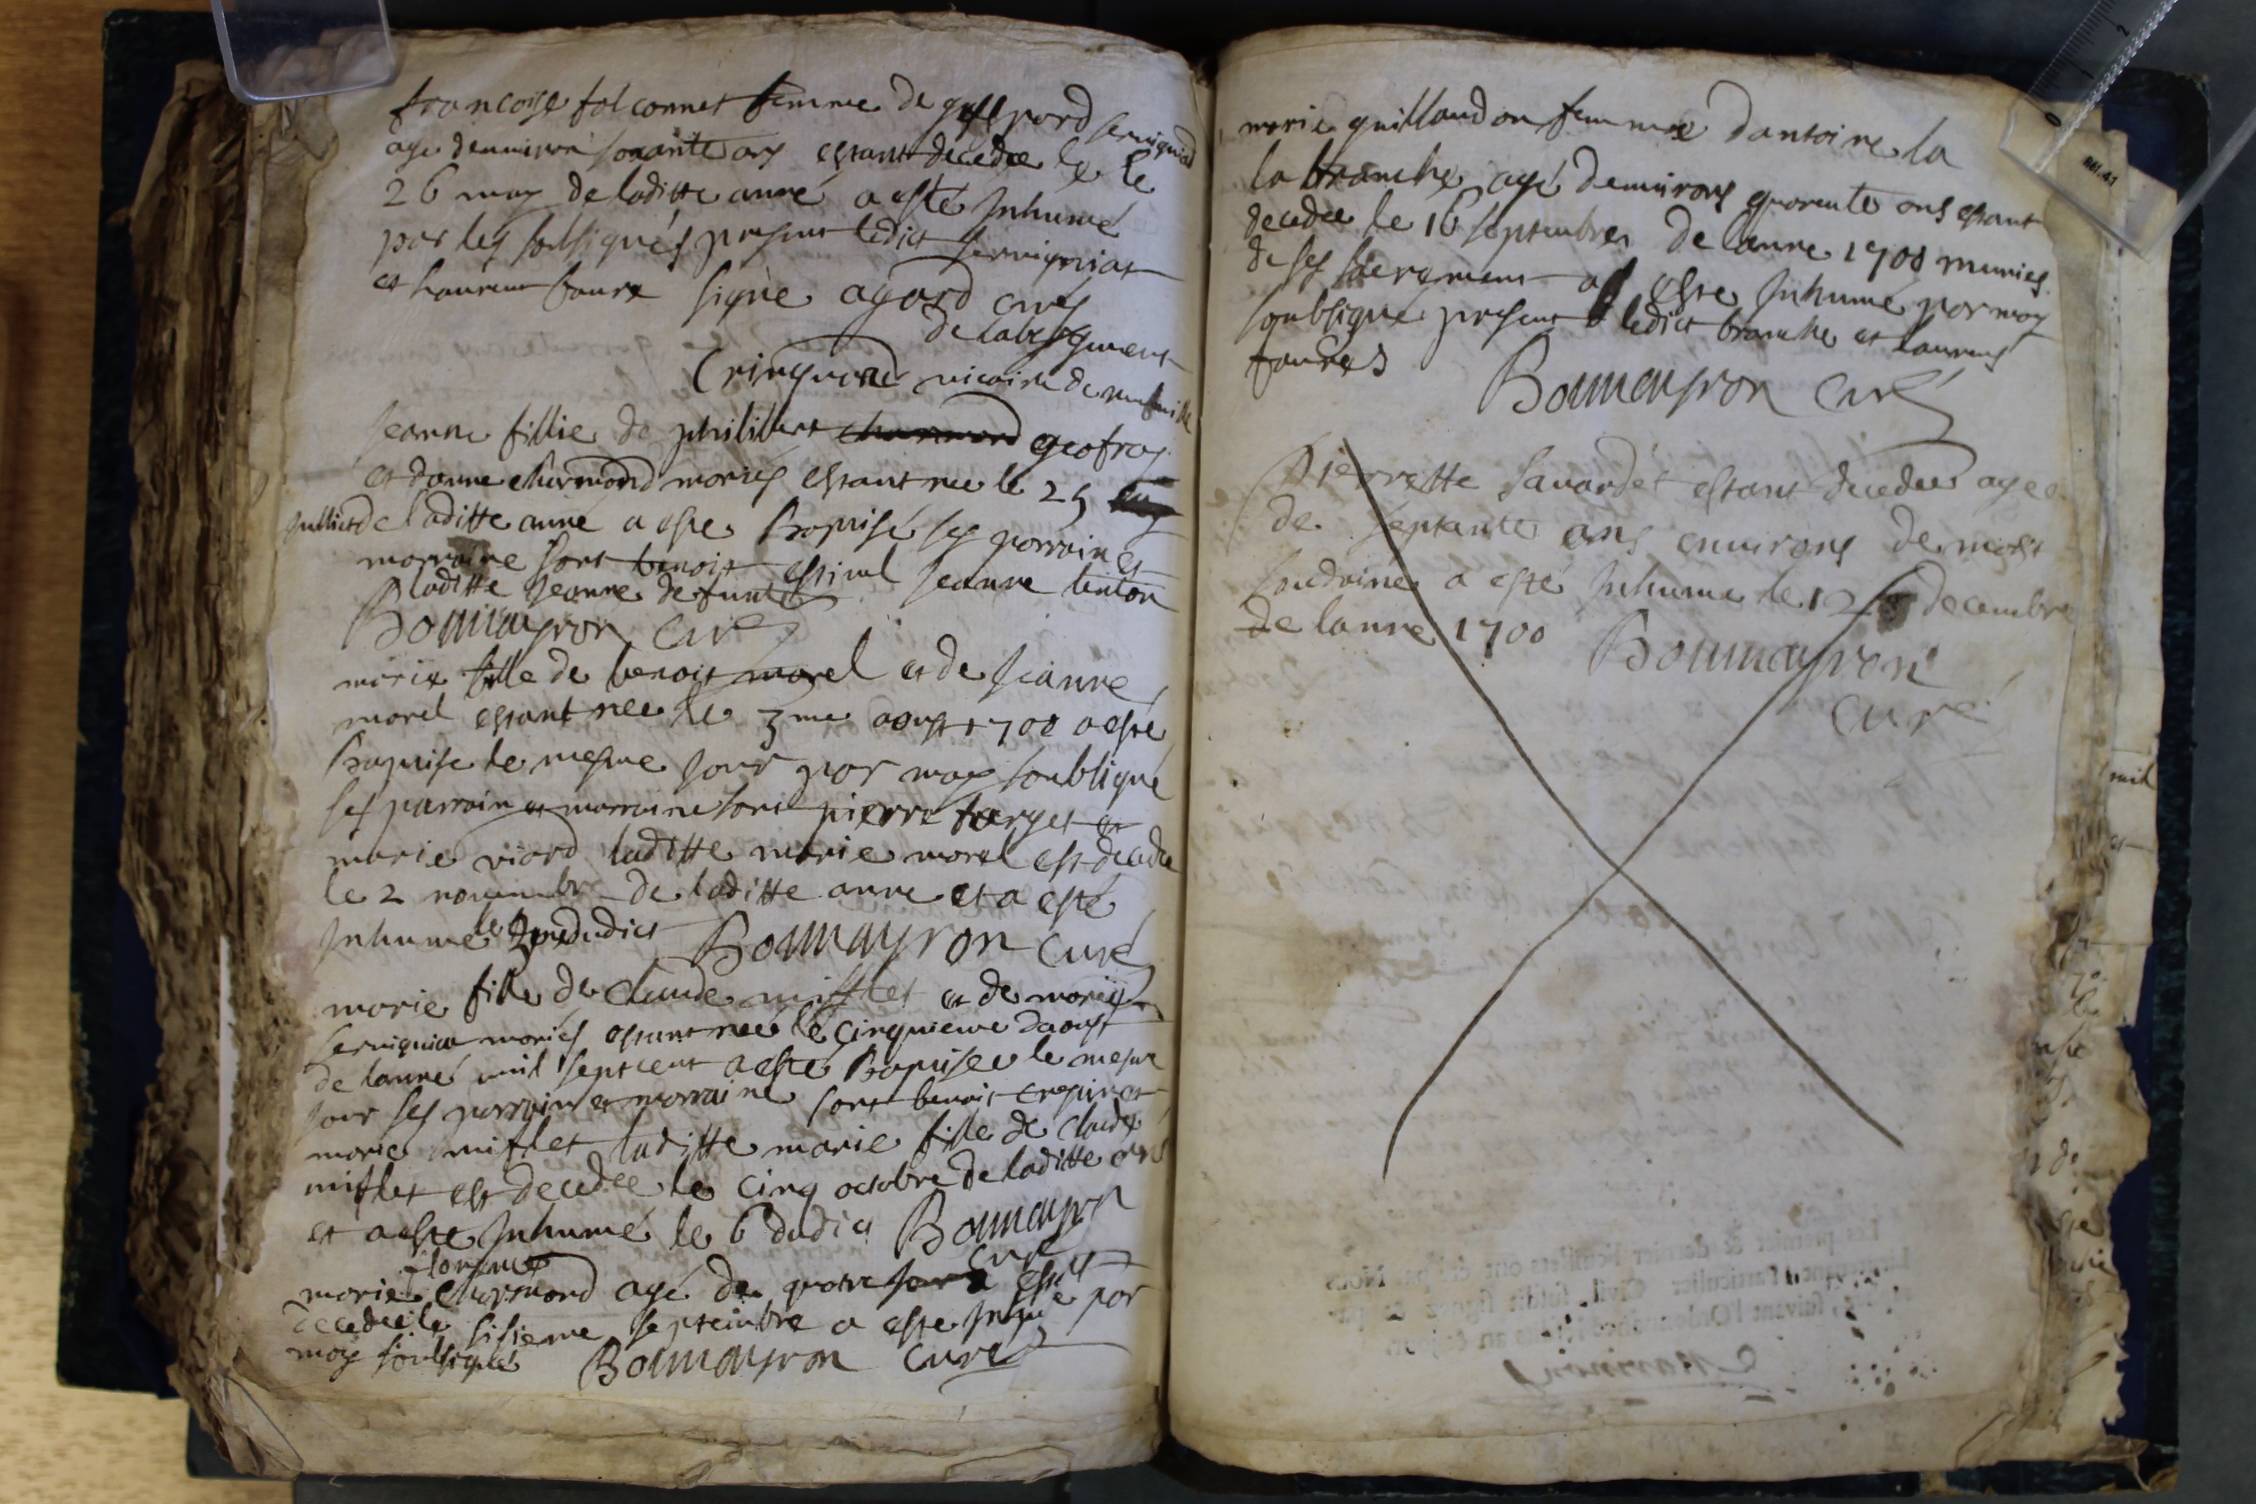 francoise falconnet femme de gaspard servigniat
age denviron soixante ans estant decedee le le
26 may de laditte anné a esté Inhumé
par les soubsignés present ledict servigniat
et laurent faure signé agard curé
de labergement
Cringuand vicaire de
Jeanne fillie de philibert charmond geofray
et danne charmond mariés estant nee le 25
Julliet de laditte anné a este Baptisé ses parrain et
marraine sont benoist estival Jeanne tinton
laditte Jeanne defunte
Boumayron curé
marie fille de benoist morel et de Jeanne
morel estant nee le 3me aoust 1700 a esté
Baptise le mesme jour par moy soubsigné
ses parrain et marraine sont pierre farget et
marie viard laditte marie morel est decedee
le 2 novembre de laditte anne et a esté
Inhumé le 3me dudict Boumayron curé
marie fille de Claude mifflet et de marie
servignia mariés estant neé le Cinquieme daoust
de lanné mil sept cent a esté Baptisee le mesme
jour ses parrain et marraine sont benoit crepin et
marie mifflet laditte marie fille de Claude
mifflet est decedee le Cinq octobre de laditte anné
et a esté Inhumé le 6 dudict Boumayron
curé
florence
marie charmond agé de quatre jours est
decedee le sisieme septembre a esté Inhumé par
moy soubsigné Boumayron curé
marie guillaudon femme dantoine la
la branche agé denvirons quarente ans estant
decedee le 16 septembre de lanne 1700 munies
de ses sacrement a esté Inhumé par moy
soubsigné present ledict branche et laurens
faure Boumayron curé
Pierrette savardet estant decedeé ageé
de septante ans environs de mort
soudaine a esté Inhume le 12 decembre
de lanne 1700 Boumayron
curé